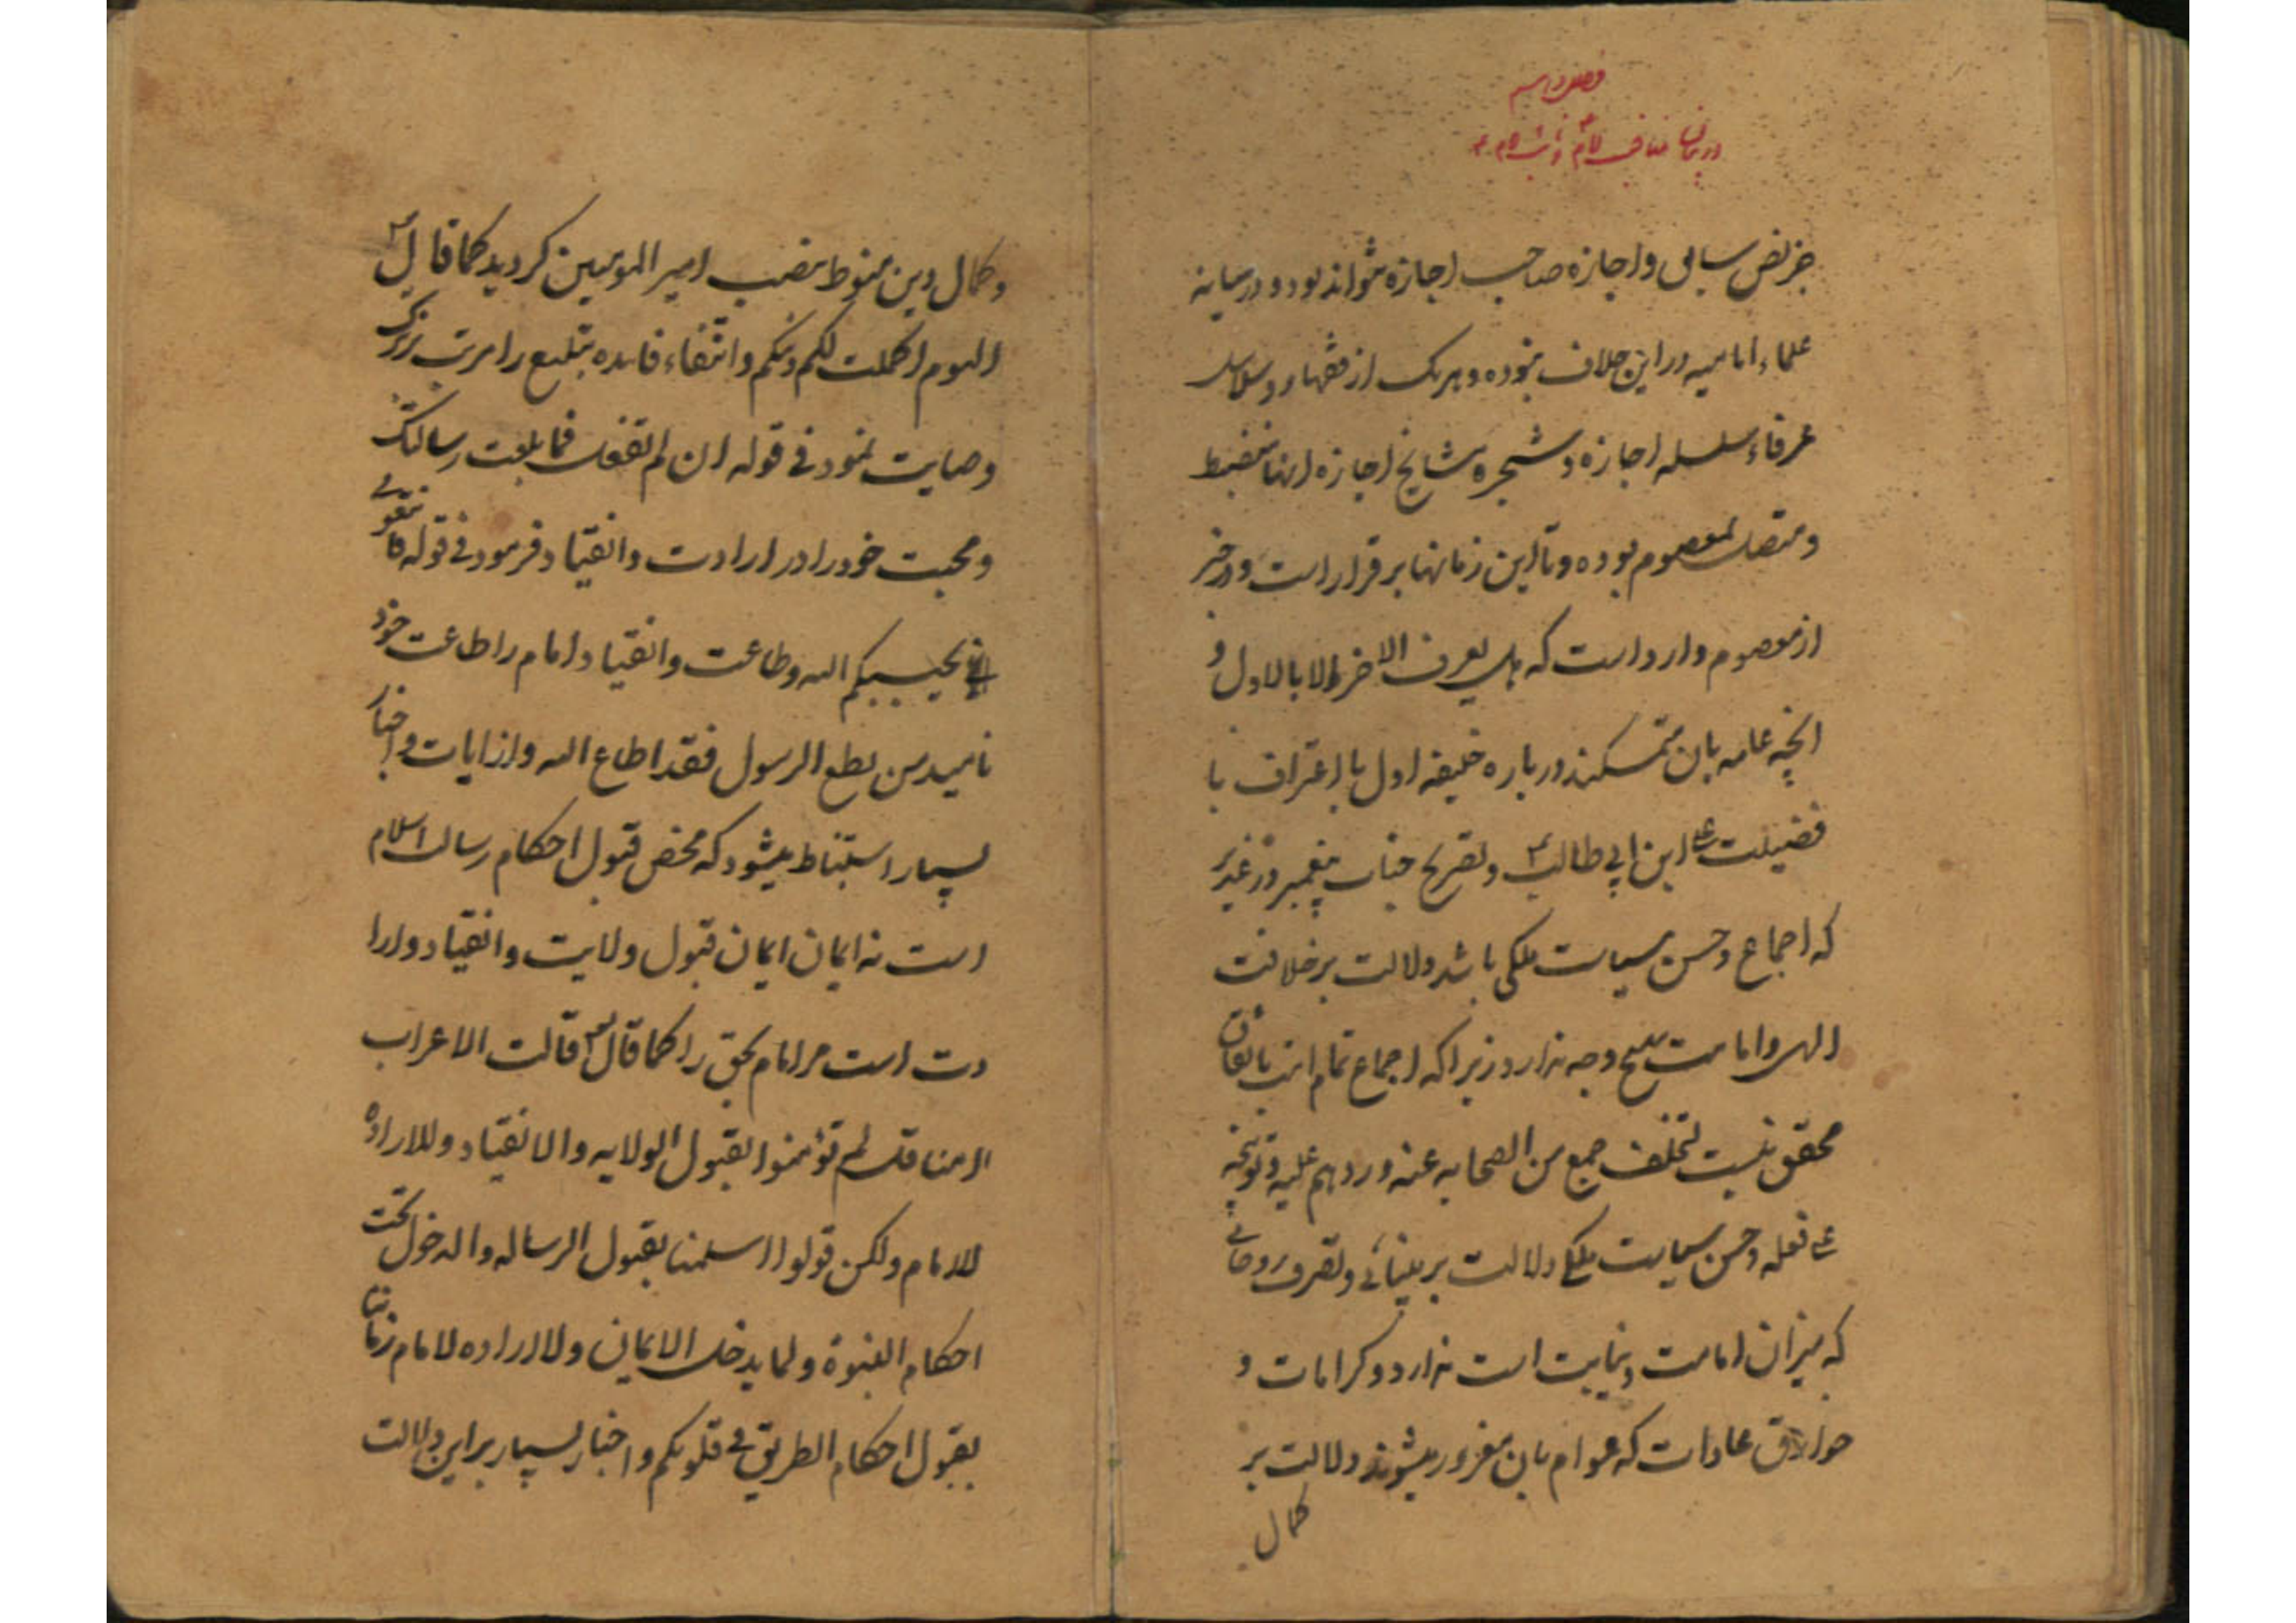 در بیان
جز نص سابق و اجازه صاحب اجازه نتواند بود و در میانه
علماء امامیه در این خلاف نبوده و هر یک از فقهاء و سلاسل
عرفاء سلسله اجازه و شجره مشایخ اجازه انها منضبط
و متصل بمعصوم بوده و تا این زمانها بر قرار است و در خبر
از معصوم وارد است که هل یعرف الاخر الا بالاول و
انچه عامه بان متمسکند در باره خلیفه اول با اعتراف با
فضیلت علی ابن ابی طالب و تصریح جناب پیغمبر در غدیر
که اجماع و حسن سیاست ملکی باشد دلالت بر خلافت
الهی و امامت بهیچ وجه ندارد زیرا که اجماع تمام امت باتفاق
محقق نیست لتخلف جمع من الصحابه عنه و ردهم علیه و توبیخه
علی فعله و حسن سیاست ملکی دلالت بر بینائی و تصرف روحانی
که میزان امامت و نیابت است ندارد و کرامات و
خوارق عادات که عوام بان مغرور میشوند دلالت بر
کمال
و کمال دین منوط بنصب امیر المومنین کردید کما قال
الیوم اکملت لکم دینکم و انتفاء فایده تبلیغ را مرتب بر ترک
وصایت نمود فی قوله ان لم تفعل فما بلغت رسالتک
و محبت خود را در ارادت و انقیاد فرمود فی قوله فاتبعونی
یحببکم الله و طاعت و انقیاد امام را طاعت خود
نامید من یطع الرسول فقد اطاع الله و از ایات و اخبار
بسیار استنباط میشود که محض قبول احکام رسالت اسلام
است نه ایمان ایمان قبول ولایت و انقیاد و ارا
دت است مر امام بحق را کما قال قالت الاعراب
امنا قل لم تؤمنوا بقبول الولایه و الانقیاد و للاراده
للامام و لکن قولوا اسلمنا بقبول الرساله و الدخول تحت
احکام النبوة و لما یدخل الایمان و لا الاراده لامام زمانتا
بقبول احکام الطریق فی قلوبکم و اخبار بسیار بر این دلالت